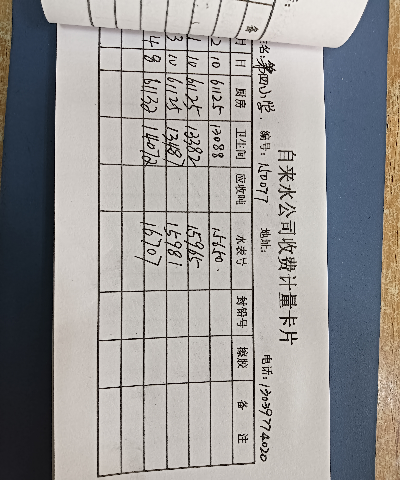 自来水公司收费计量卡片
名:第四小学. 编号:150077 地址: 电话:13039774020
月 日 厨房 卫生间 应收吨 水表号 封铅号 橡胶 备 注
2 10 61125 13088 15650.
10 61125 13382 15965
3 10 61125 13487 15981
4 8 61132 14072 16707